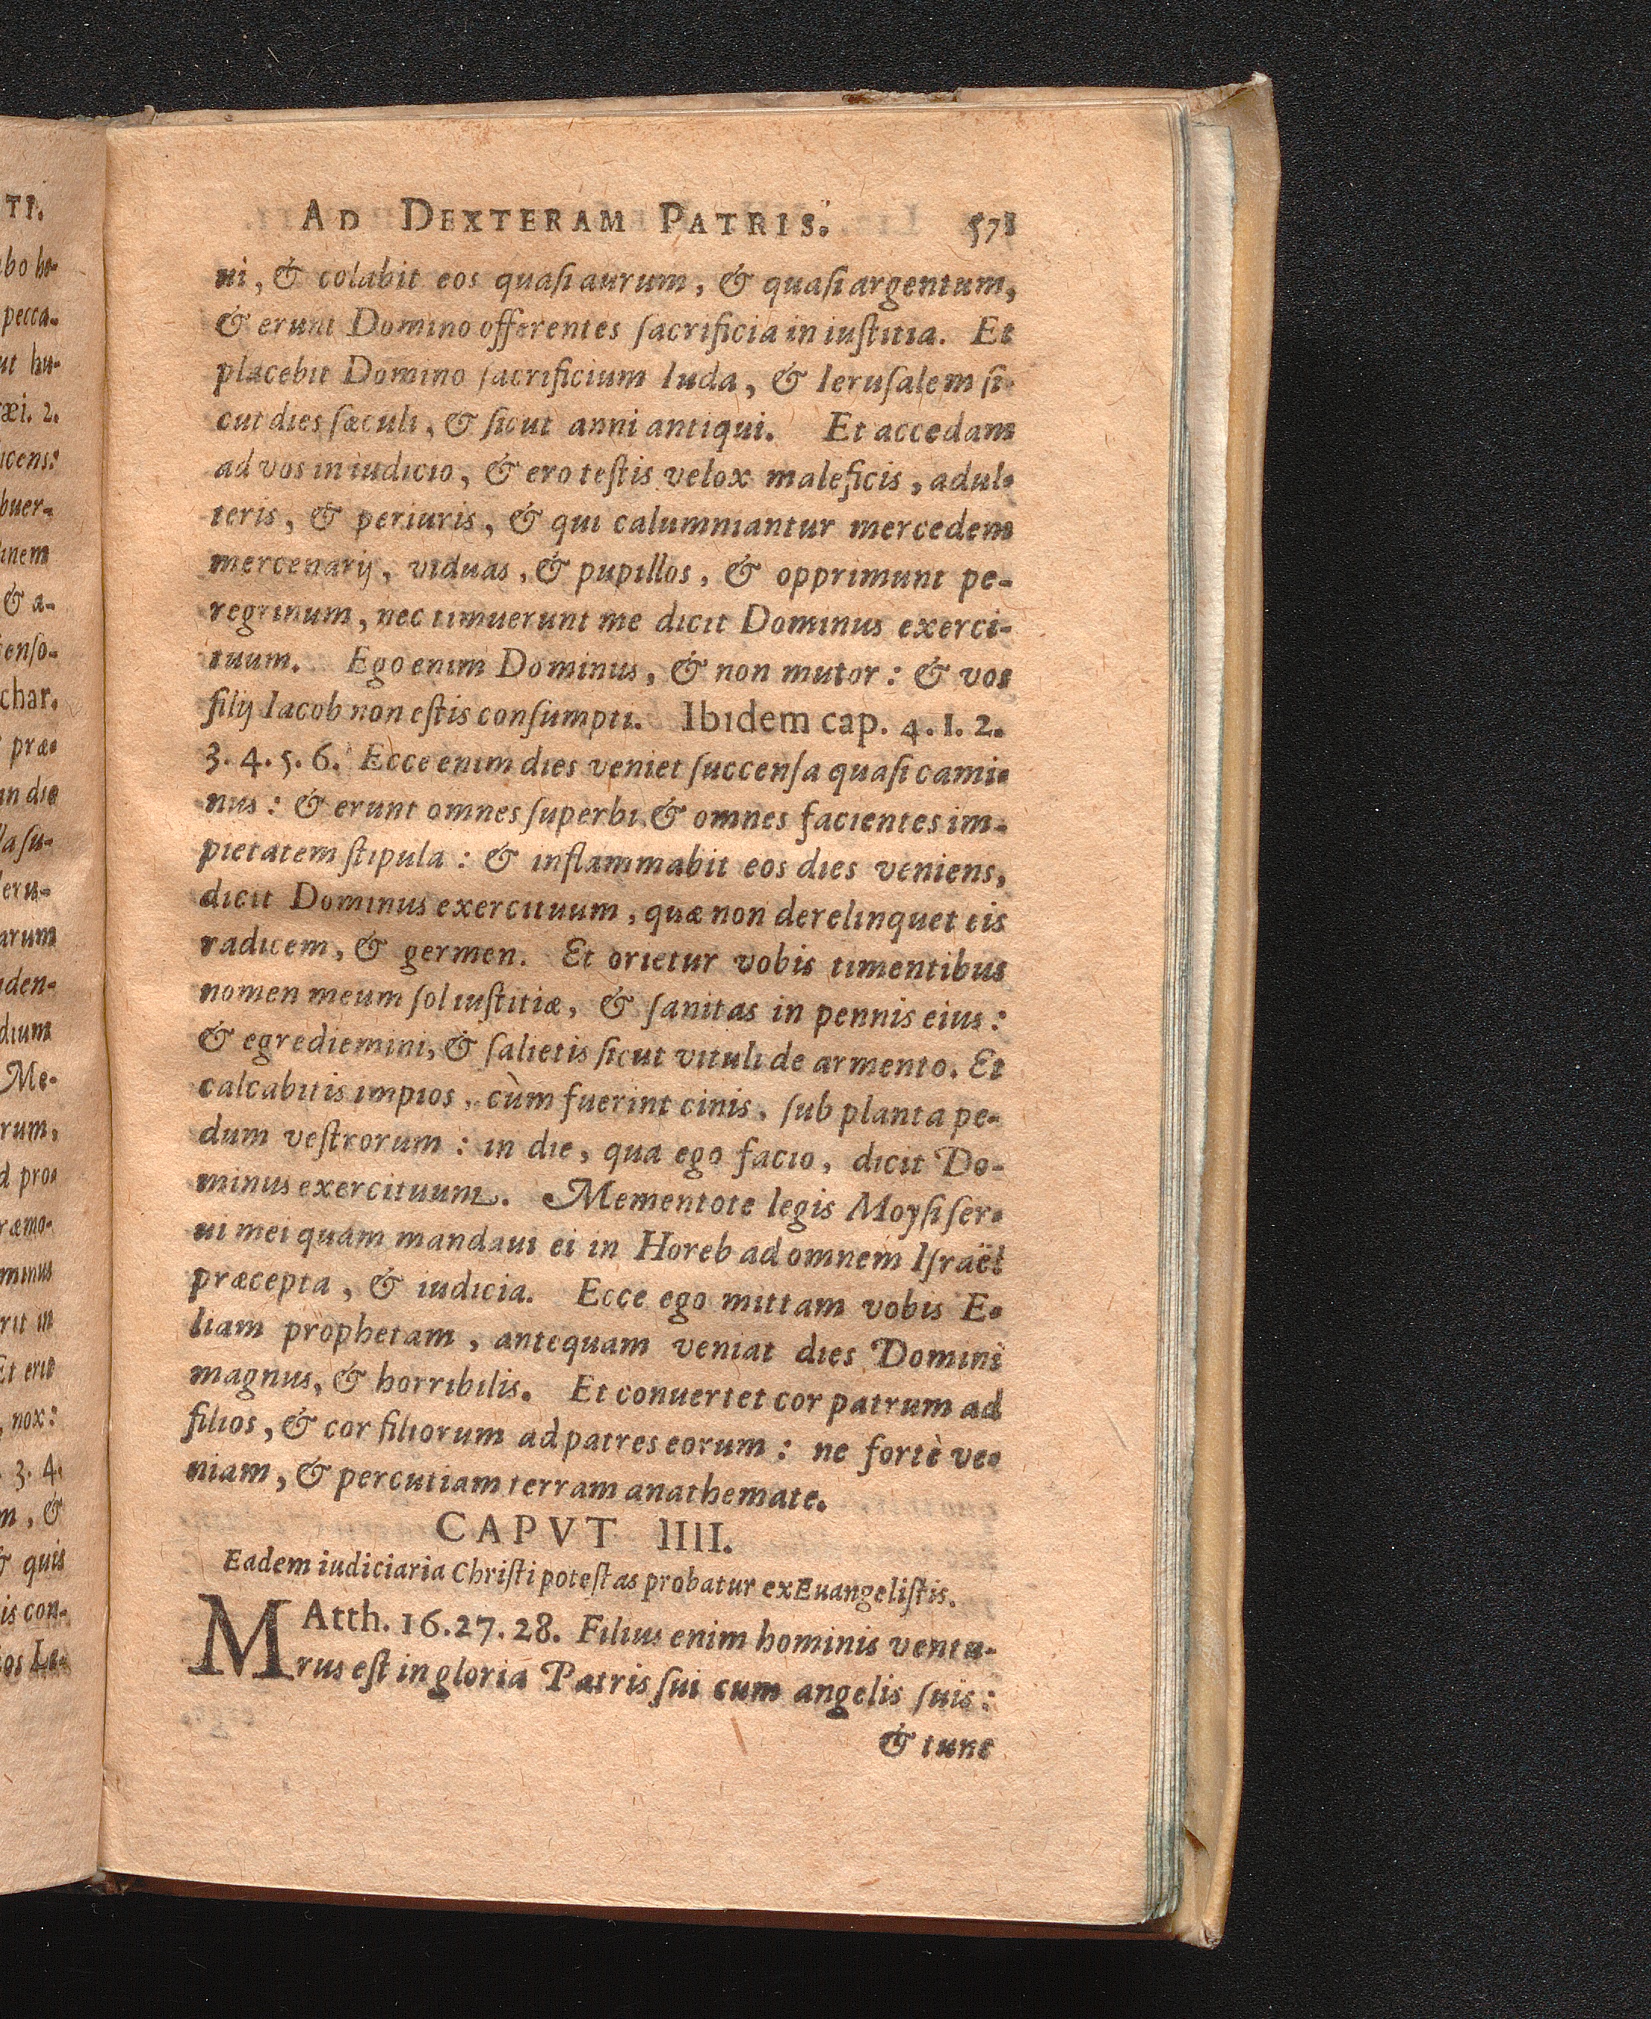 AD DEXTERAM PATRIS. 571
ui, & colabit eos quaſi aurum, & quaſi argentum,
& erunt Domino offerentes ſacrificia in iuſtitia. Et
placebit Domino ſacrificium Iuda, & Ieruſalem ſi-
cut dies ſæculi, & ſicut anni antiqui. Et accedam
ad vos in iudicio, & ero teſtis velox maleficis, adul-
teris, & periuris, & qui calumniantur mercedem
mercenarij, viduas, & pupillos, & opprimunt pe-
regrinum, nec timuerunt me dicit Dominus exerci-
tuum. Ego enim Dominus, & non mutor: & vos
filij Iacob non eſtis conſumpti. Ibidem cap. 4. 1. 2.
3. 4. 5. 6. Ecce enim dies veniet ſuccenſa quaſi cami-
nus: & erunt omnes ſuperbi, & omnes facientes im-
pietatem ſtipula: & inflammabit eos dies veniens,
dicit Dominus exercituum, quæ non derelinquet eis
radicem, & germen. Et orietur vobis timentibus
nomen meum ſol iuſtitiæ, & ſanitas in pennis eius:
& egrediemini, & ſalietis ſicut vituli de armento. Et
calcabitis impios, cùm fuerint cinis, ſub planta pe-
dum veſtrorum: in die, qua ego facio, dicit Do-
minus exercituum. Mementote legis Moyſi ſer-
ui mei quam mandaui ei in Horeb ad omnem Iſraël
præcepta, & iudicia. Ecce ego mittam vobis E-
liam prophetam, antequam veniat dies Domini
magnus, & horribilis. Et conuertet cor patrum ad
filios, & cor filiorum ad patres eorum: ne fortè ve-
niam, & percutiam terram anathemate.
CAPVT IIII.
Eadem iudiciaria Chriſti poteſtas probatur ex Euangeliſtis.
MAtth. 16. 27. 28. Filius enim hominis ventu-
rus eſt in gloria Patris ſui cum angelis ſuis:
& tunc